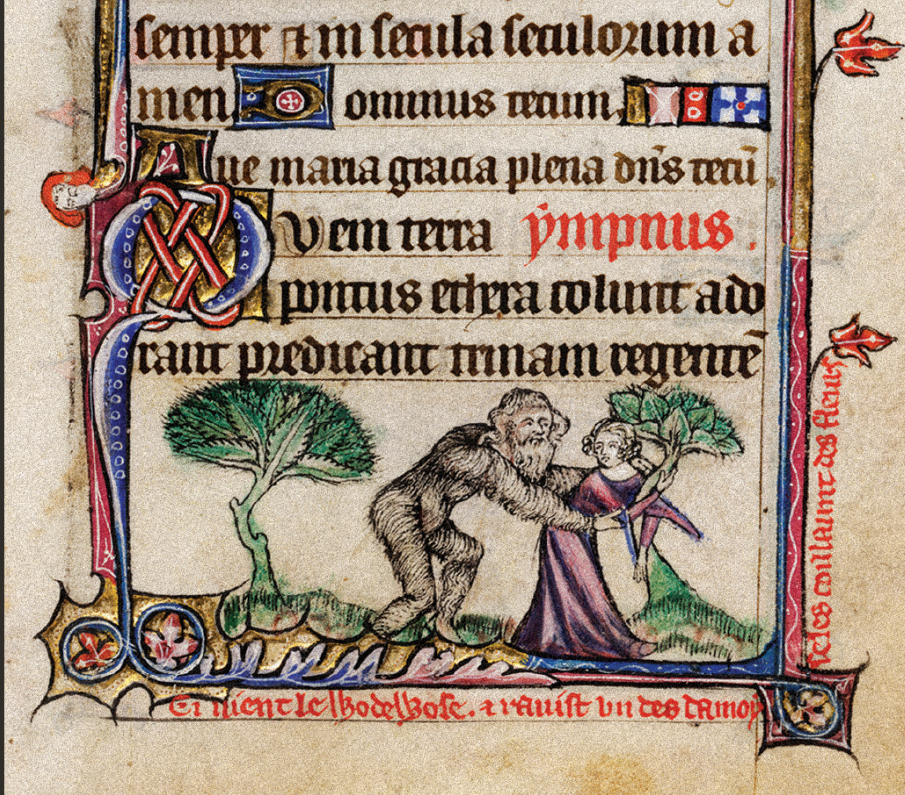 semper ⁊ in secula seculorum a
men Dominus tecum.
Aue maria gracia plena dn̄s tecū.
Quem terra ẏmpnus.
pontus ethera colunt ado
rant predicant trinam regentē
Ci uient le Wodewose. ⁊ rauist vn des damoy
seles coillaunt des fleurs